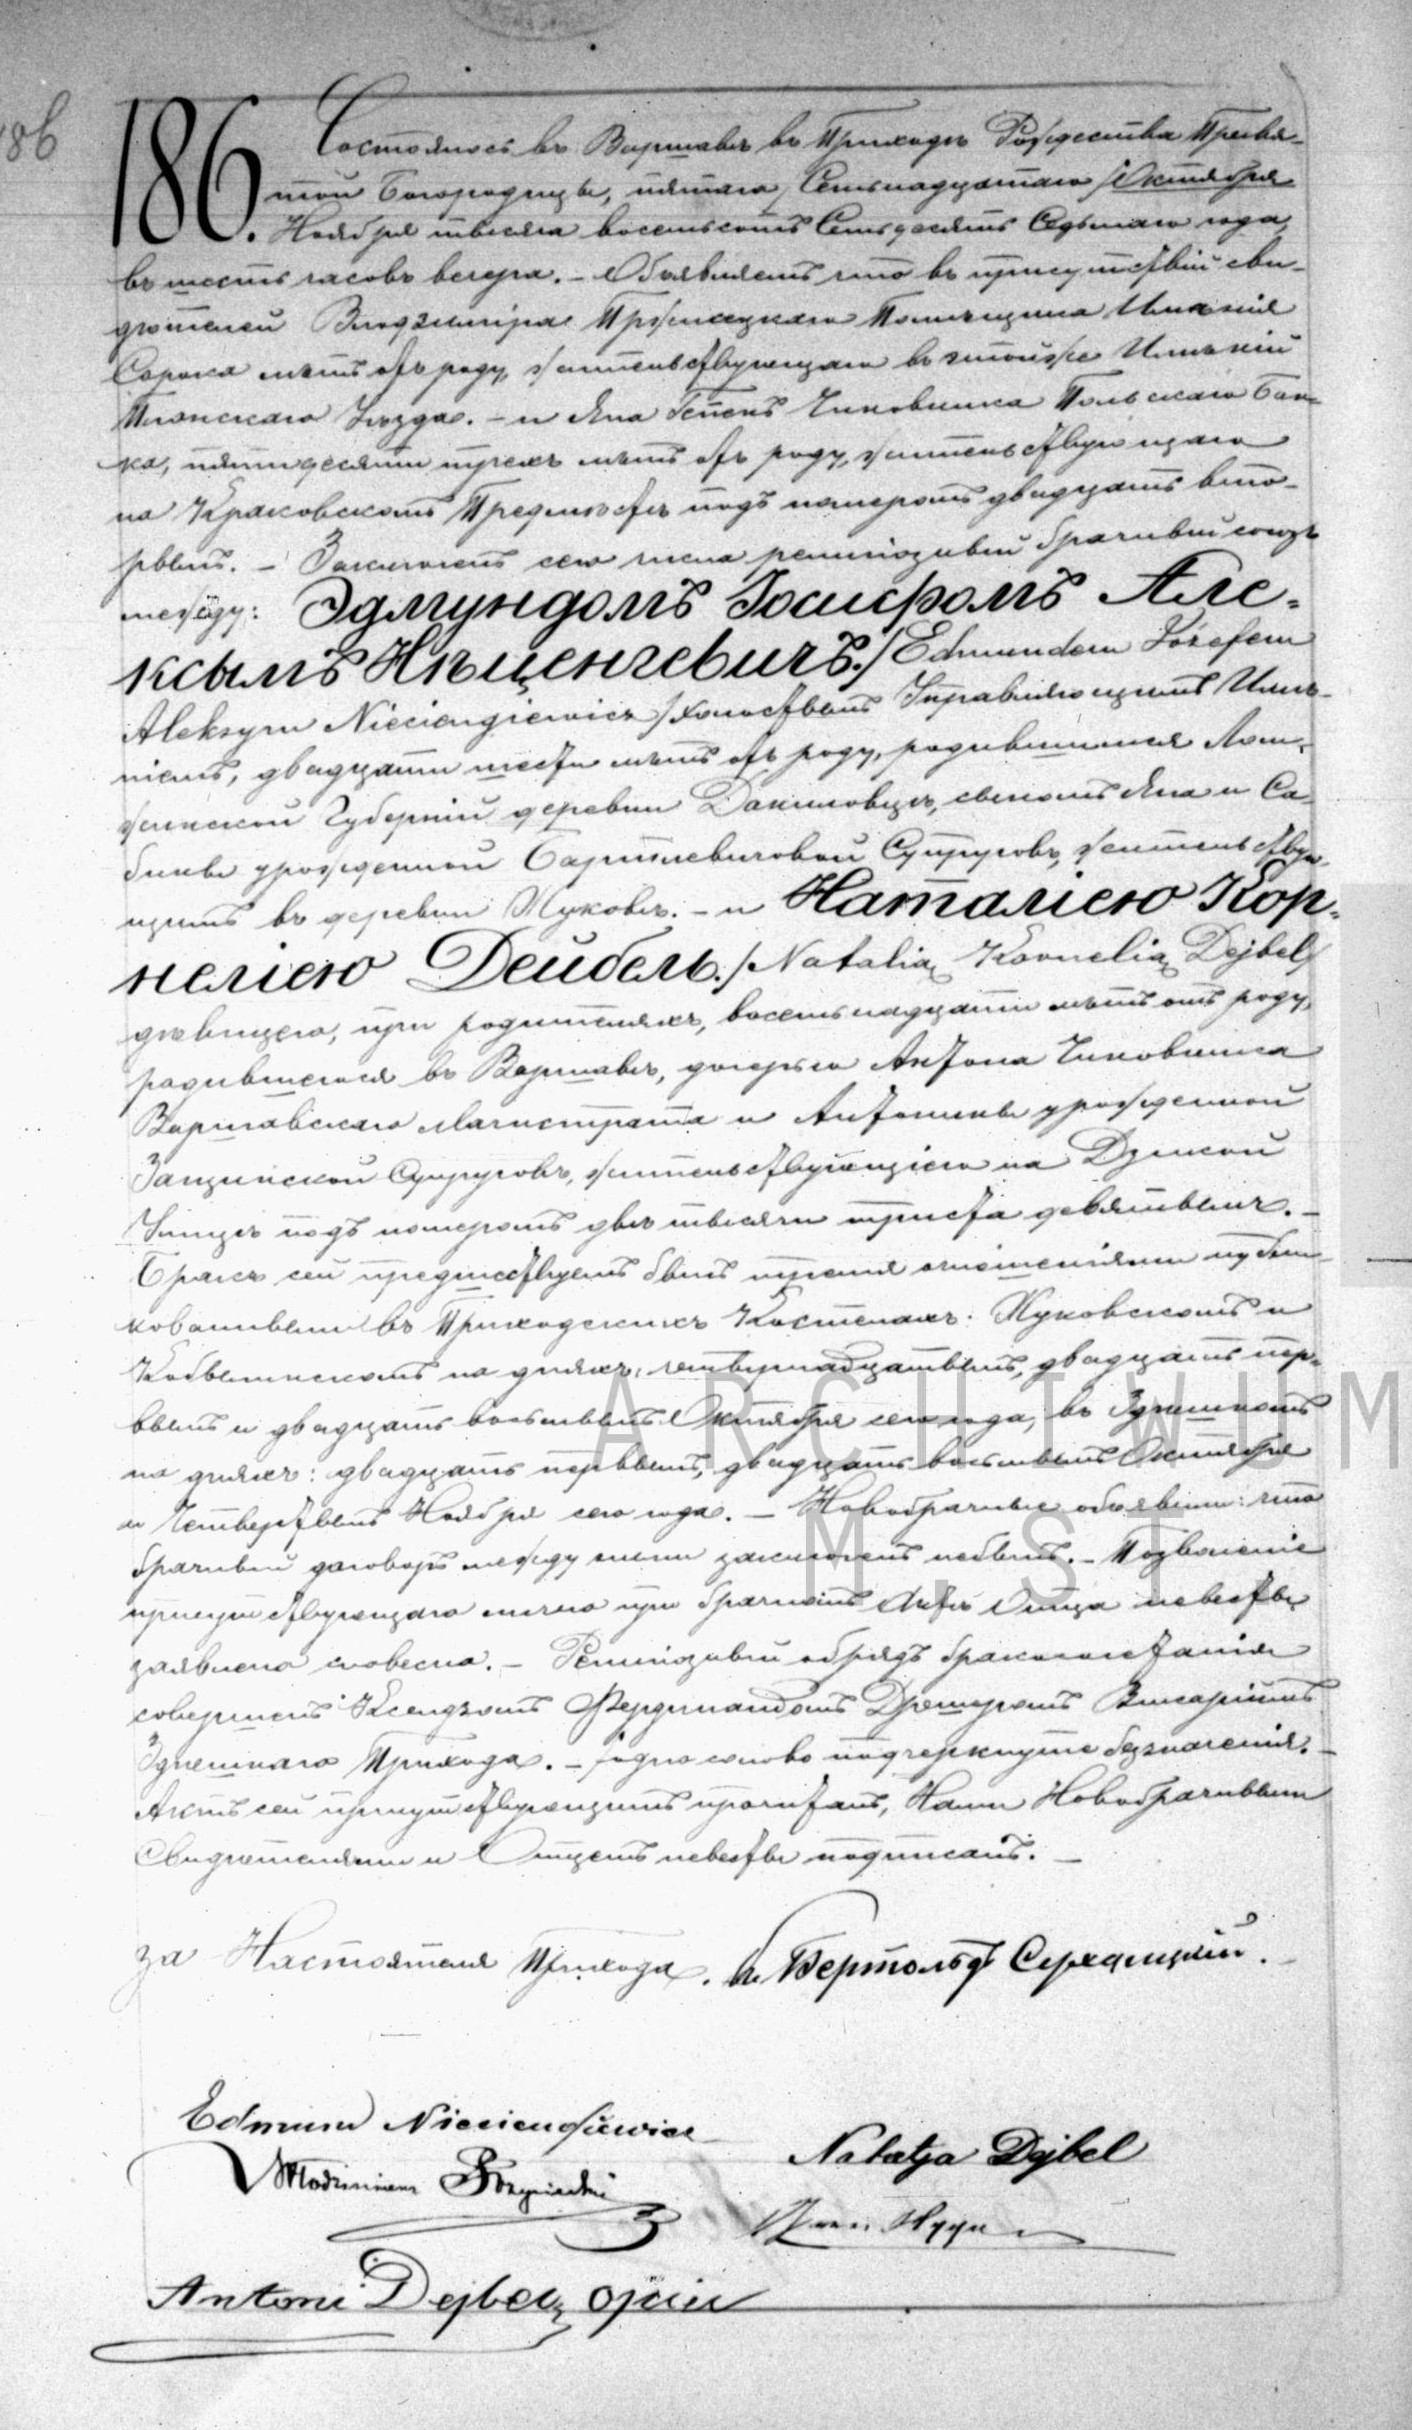 186
186. Состоялось въ Варшавѣ въ Приходѣ Рождества Пресвя-
той Богородицы, пятаго /Семьнадцатаго/ Октября
Ноября тысяча восемьсотъ семьдесятъ седьмаго года,
въ шесть часовъ вечера. – Объявляемъ что въ присутствіи сви-
дѣтелей Помѣщика Имѣнія
лѣтъ отъ роду, жительствующаго въ томъ же Имѣніи
Уѣзда. – и Яна Чиновника Польскаго Бан-
ка, пятидесяти трехъ лѣтъ отъ роду, жительствующаго
на Краковскомъ Предмѣстьѣ подъ номеромъ двадцать вто-
рымъ. – Заключенъ сего числа религіозный брачный союзъ
между: Эдмундомъ Іосифомъ Але-
ксымъ Нѣценгевичъ. /Edmundem Józefem
Aleksym Nieciengiewicz/ холостымъ Управляющимъ Имѣ-
ніемъ, двадцати шести лѣтъ отъ роду, родившимся Лом-
жинской Губерніи деревни сыномъ Яна и Са-
бины урожденной Супруговъ, жительствую-
щимъ въ деревни Жуковѣ. – и Наталіею Кор-
неліею Дейбель. /Natalią Kornelią Dejbel/
дѣвицею, при родителяхъ, восемьнадцати лѣтъ отъ роду,
родившеюся въ Варшавѣ, дочерью Антона Чиновника
Варшавскаго Магистрата и Антонины урожденной
Супруговъ, жительствующею на Дзикой
Улицѣ подъ номеромъ двѣ тысячи триста девятымъ. –
Браку сему предшествовали три оглашенія публи-
кованныя въ Приходскихъ Костелахъ: Жуковскомъ и
на дняхъ: четырнадцатымъ, двадцать пер-
вымъ и двадцать восьмымъ Октября сего года, въ Здѣшномъ
на дняхъ: двадцать первымъ, двадцать восьмымъ Октября
и Четвертымъ Ноября сего года. – Новобрачные объявили: что
брачный договоръ между ними заключенъ небылъ. – Позволеніе
присутствующаго лично при брачномъ Актѣ Отца невѣсты
заявлено словесно. – Религіозный обрядъ бракосочетанія
совершенъ Ксендзомъ Фердинандомъ Викаріемъ
Здѣшнаго Прихода. – одно слово подчеркнутое безъ значенія. –
Актъ сей присутствующимъ прочитанъ, Нами Новобрачными
Свидѣтелями и Отцемъ невѣсты подписанъ. –
за Настоятеля Прихода.
Edmund Nieciengiewicz
Natalja Dejbel
Włodzimierz
Antoni Dejbel, ojciec
ARCHIWUM
M. ST